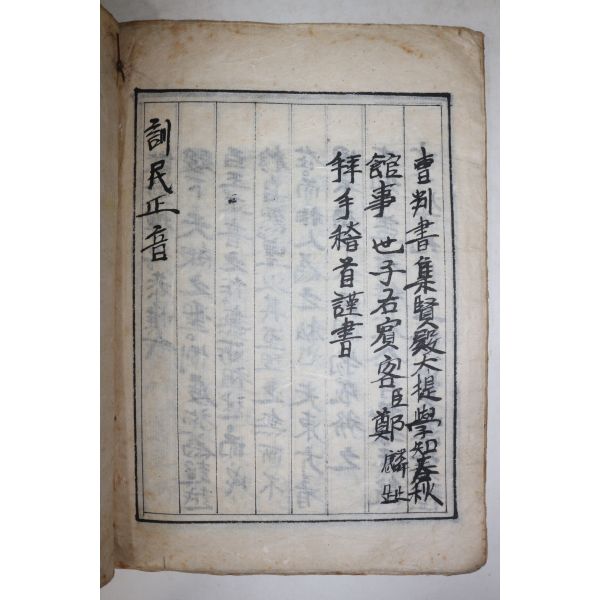 曺判書集賢殿大提學知春秋
館事 世子右賓客臣鄭麟趾
拜手稽首謹書
訓民正音